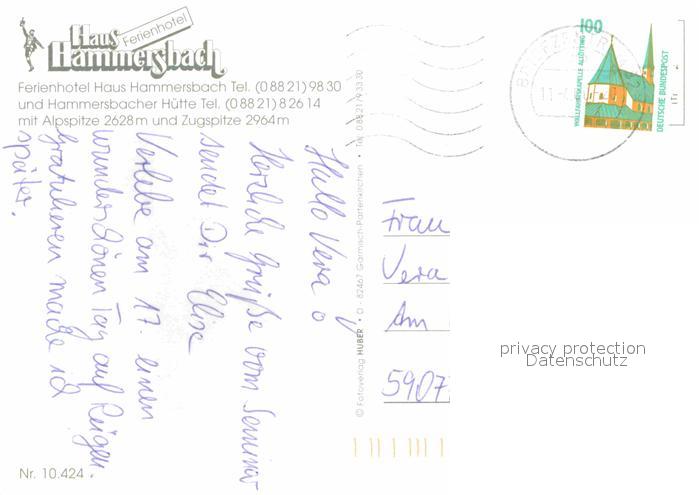 Haus
Ferienhotel
Hammersbach
Ferienhotel Haus Hammersbach Tel. (0 88 21) 98 30
und Hammersbacher Hütte Tel. (0 88 21) 8 26 14
mit Alpspitze 2628 m und Zugspitze 2964 m
Hallo Vera
Herzliche Grüße vom Seminar
sendet Dir Elise
Verlebe am 17. einen
wunderschönen Tag auf Rügen.
Gratulieren mache ich
später.
Nr. 10.424
© Fotoverlag HUBER • D - 82467 Garmisch-Partenkirchen • Tel. 0 88 21/9 33 30
100
WALLFAHRTSKAPELLE ALTÖTTING
DEUTSCHE BUNDESPOST
BRIEFZENTR
11
Frau
Vera
Am
5907
privacy protection
Datenschutz